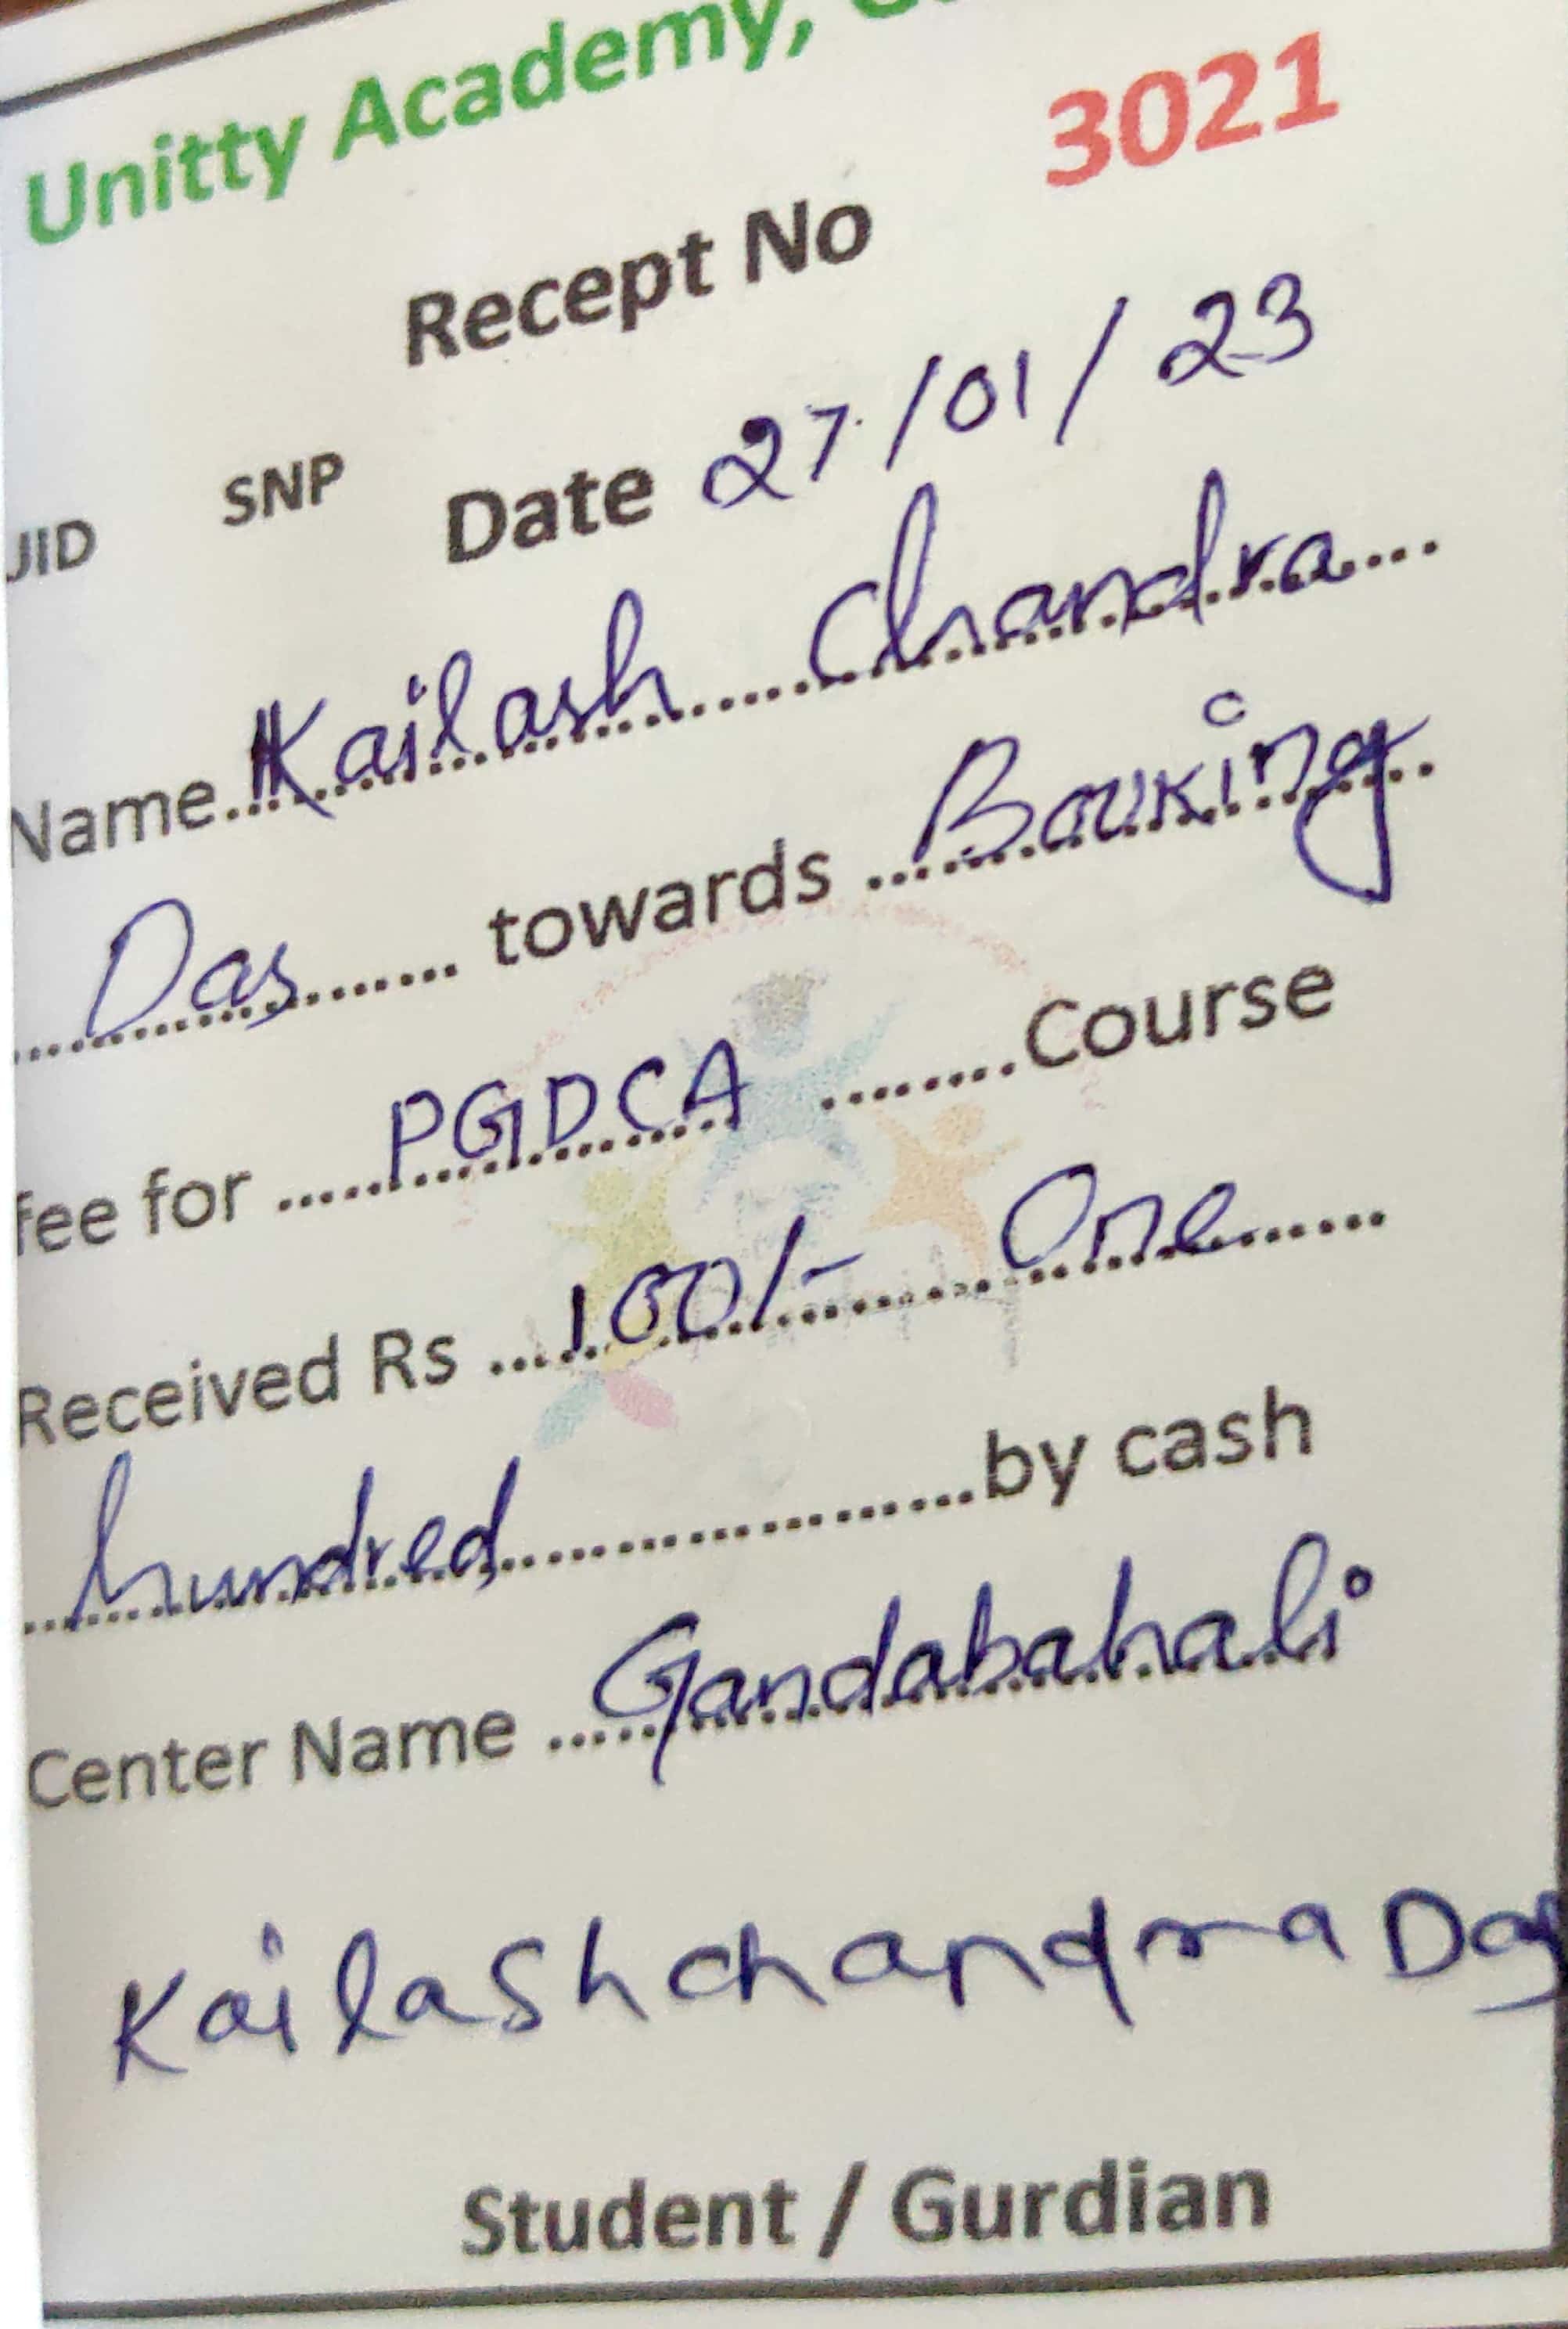 Unitty Academy,
3021
Recept No
JID SNP Date 27/01/23
Name Kailash Chandra
Das towards Booking
fee for PGDCA Course
Received Rs 100/- One
hundred by cash
Center Name Gandabahali
Kailash chandra Das
Student / Gurdian